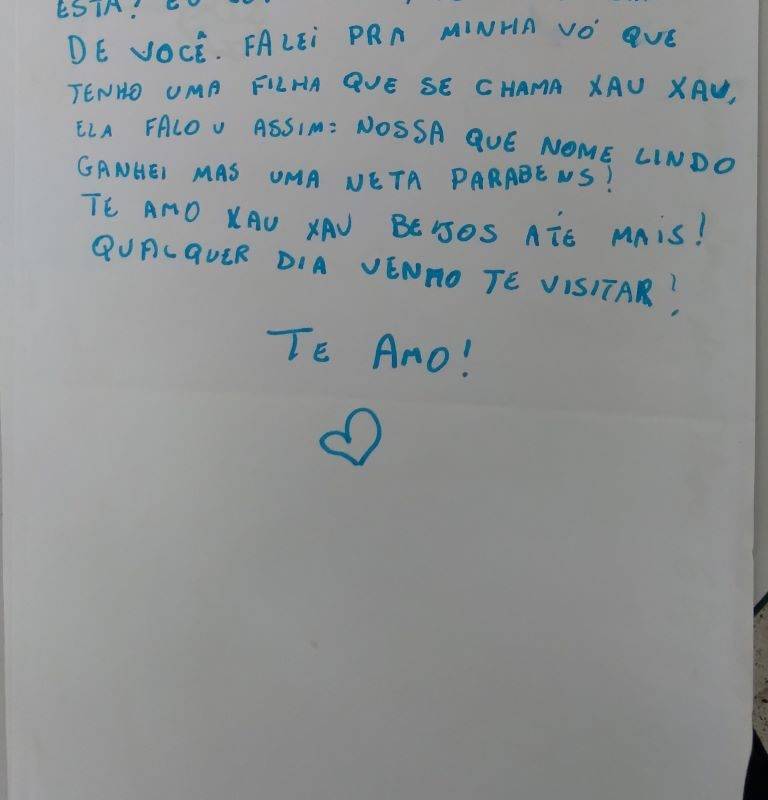 ESTÁ? EU
DE VOCÊ. FALEI PRA MINHA VÓ QUE
TENHO UMA FILHA QUE SE CHAMA XAU XAU,
ELA FALOU ASSIM: NOSSA QUE NOME LINDO
GANHEI MAS UMA NETA PARABENS!
TE AMO XAU XAU BEIJOS ATÉ MAIS!
QUALQUER DIA VENHO TE VISITAR!
TE AMO!